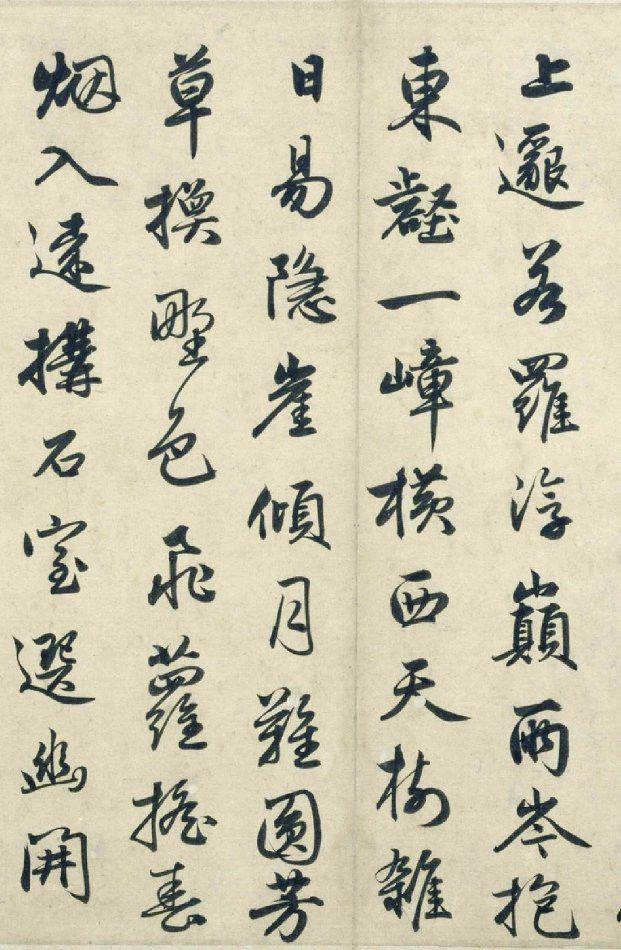 上邈若羅浮巔兩岑抱
東壑一嶂橫西天樹雜
日易隱崖傾月難圓芳
草換野色飛蘿搖春
烟入遠構石室選幽開